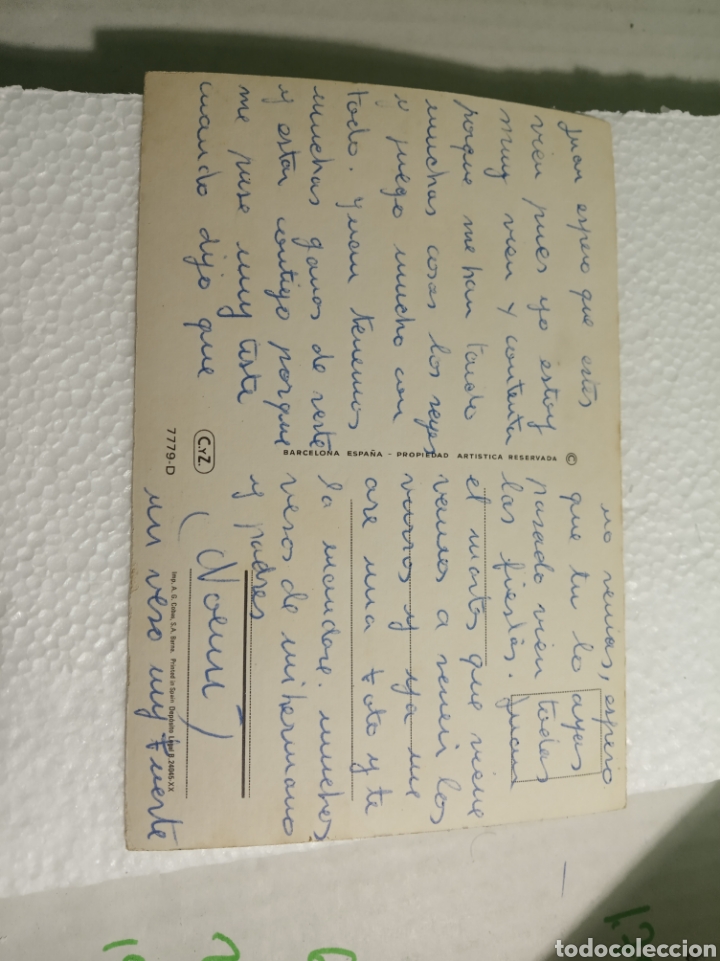 Juan espero que estes
vien pues yo estoy
muy vien y contenta
porque me han traido
muchas cosas los reyes
y juego mucho con
todo. Juan tenemos
muchas ganas de verte
y estar contigo porque
me puse muy triste
cuando dijo que
no venias, espero
que tu lo ayas
pasado vien todas
las fiestas. Juan
el martes que viene
vamos a venir los
y ya me
are una foto y te
la mandare. muchos
vesos de mi hermano
y padres
(Noemi)
un veso muy fuerte
BARCELONA ESPAÑA - PROPIEDAD ARTISTICA RESERVADA ©
C.YZ.
7779-D
Imp. A. G. Cobas, S.A. Barna. Printed in Spain Depósito Legal B. 24045-XX
todocoleccion.net